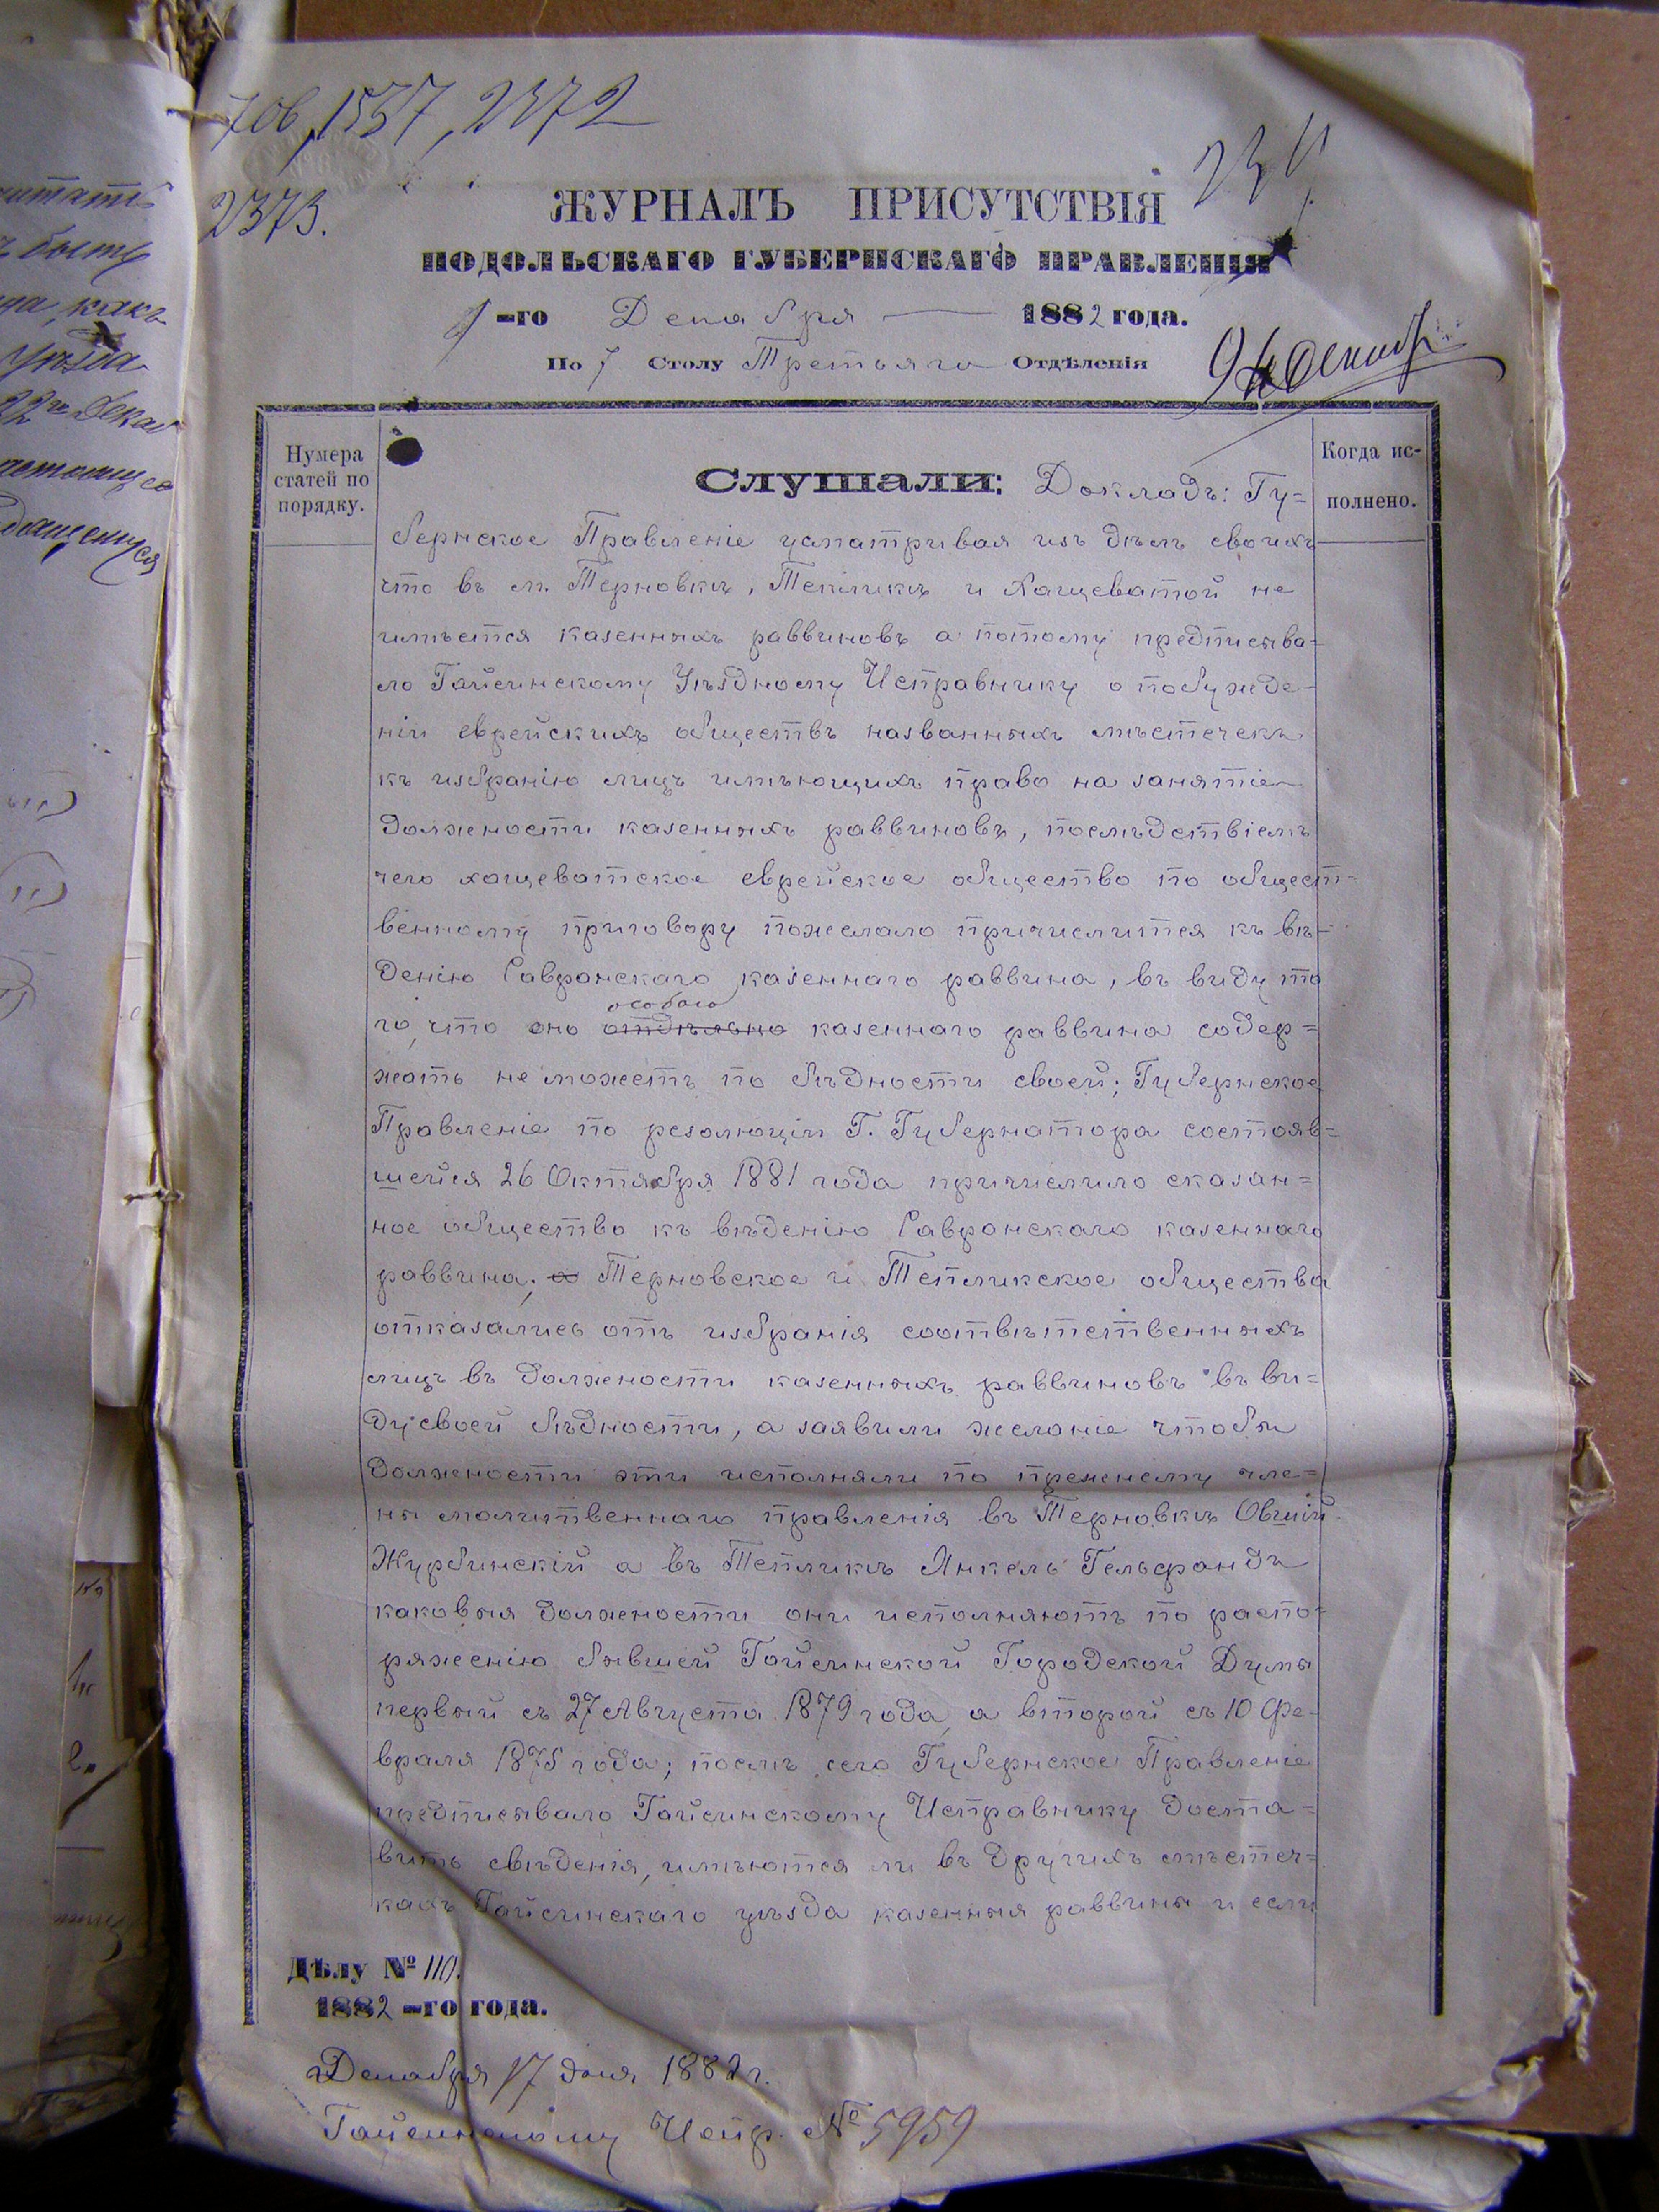 706, 1537, 2372
2373.
ЖУРНАЛЪ ПРИСУТСТВІЯ
ПОДОЛЬСКАГО ГУБЕРНСКАГО ПРАВЛЕНІЯ
-го Декабря 1882 года.
По 7 Столу Третьяго Отдѣленія
Нумера
статей по
порядку.
Когда ис-
полнено.
Слушали: Докладъ: Гу=
бернское Правленіе усматривая изъ дѣлъ своихъ
что въ м. Терновкѣ, Тепликѣ и Хащеватой не
имѣется казенныхъ раввиновъ а потому предписыва=
ло Гайсинскому Уѣздному Исправнику о побужде-
ніи еврейскихъ обществъ названныхъ мѣстечекъ
къ избранію лицъ имѣющихъ право на занятіе
должности казенныхъ раввиновъ, послѣдствіемъ
чего хащеватское еврейское общество по общест-
венному приговору пожелало причислится къ вѣ-
денію Савранскаго казеннаго раввина, въ виду то
особаго
го, что оно отдѣльно казеннаго раввина содер=
жать не можетъ по бѣдности своей; Губернское
Правленіе по резолюціи Г. Губернатора состояв=
шейся 26 Октября 1881 года причислило сказан=
ное общество къ вѣденію Савранскаго казеннаго
раввина; а Терновское и Тепликское общества
отказались отъ избранія соотвѣтственныхъ
лицъ въ должности казенныхъ раввиновъ въ ви=
ду своей бѣдности, а заявили желаніе чтобы
должности эти исполняли по прежнему чле=
ны молитвеннаго правленія въ Терновкѣ Овшій
Журбинскій а въ Тепликѣ Янкель Гельфандъ
каковыя должности они исполняютъ по распо-
ряженію бывшей Гайсинской Городской Думы
первый съ 27 Августа 1879 года, а второй съ 10 Фе-
враля 1875 года; послѣ сего Губернское Правленіе
предписывало Гайсинскому Исправнику доста=
вить свѣденія, имѣются ли въ другихъ мѣстеч=
кахъ Гайсинскаго уѣзда казенныя раввины и если
Дѣлу № 110.
1882 -го года.
Декабря 17 дня 1882 г.
Гайсинскому Испр. № 5959